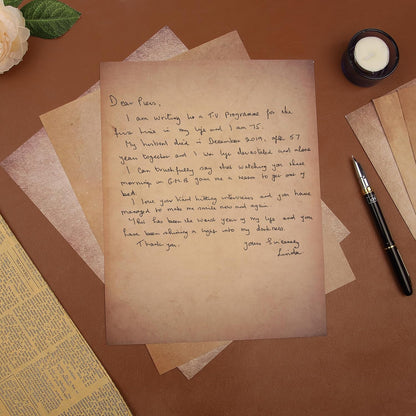 Dear Piers,
I am writing to a T.V. Programme for the
first time in my life and I am 75.
My husband died in December 2019, after 57
years together and I was left devastated and alone
I can truthfully say that watching you these
mornings on G.M.B gave me a reason to get out of
bed.
I love your hard hitting interviews and you have
managed to make me smile now and again.
This has been the worst year of my life and you
have been shining a light into my darkness.
Thank you.
Yours Sincerely
Linda